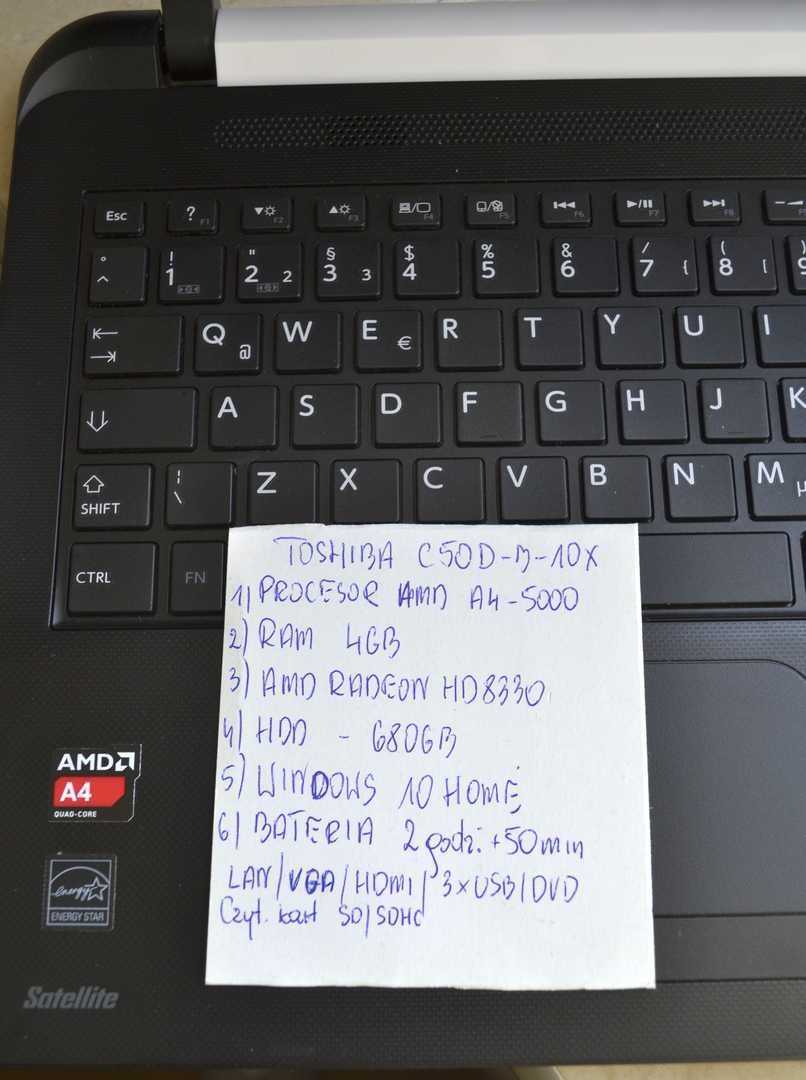 Esc ? F1 F2 F3 F4 F5 F6 F7 F8
° ^ ! 1 " 2 2 § 3 3 $ 4 % 5 & 6 / 7 { ( 8 [ ) 9
Q @ W E € R T Y U I
A S D F G H J K
SHIFT ¦ \ Z X C V B N M µ
CTRL FN
TOSHIBA C50D-B-10X
1) PROCESOR AMD A4-5000
2) RAM 4GB
3) AMD RADEON HD8330
4) HDD - 680GB
5) WINDOWS 10 HOME
6) BATERIA 2 godz. +50min
LAN/VGA/HDMI/3xUSB/DVD
Czyt. kart SD/SDHC
AMD
A4
QUAD-CORE
energy
ENERGY STAR
Satellite